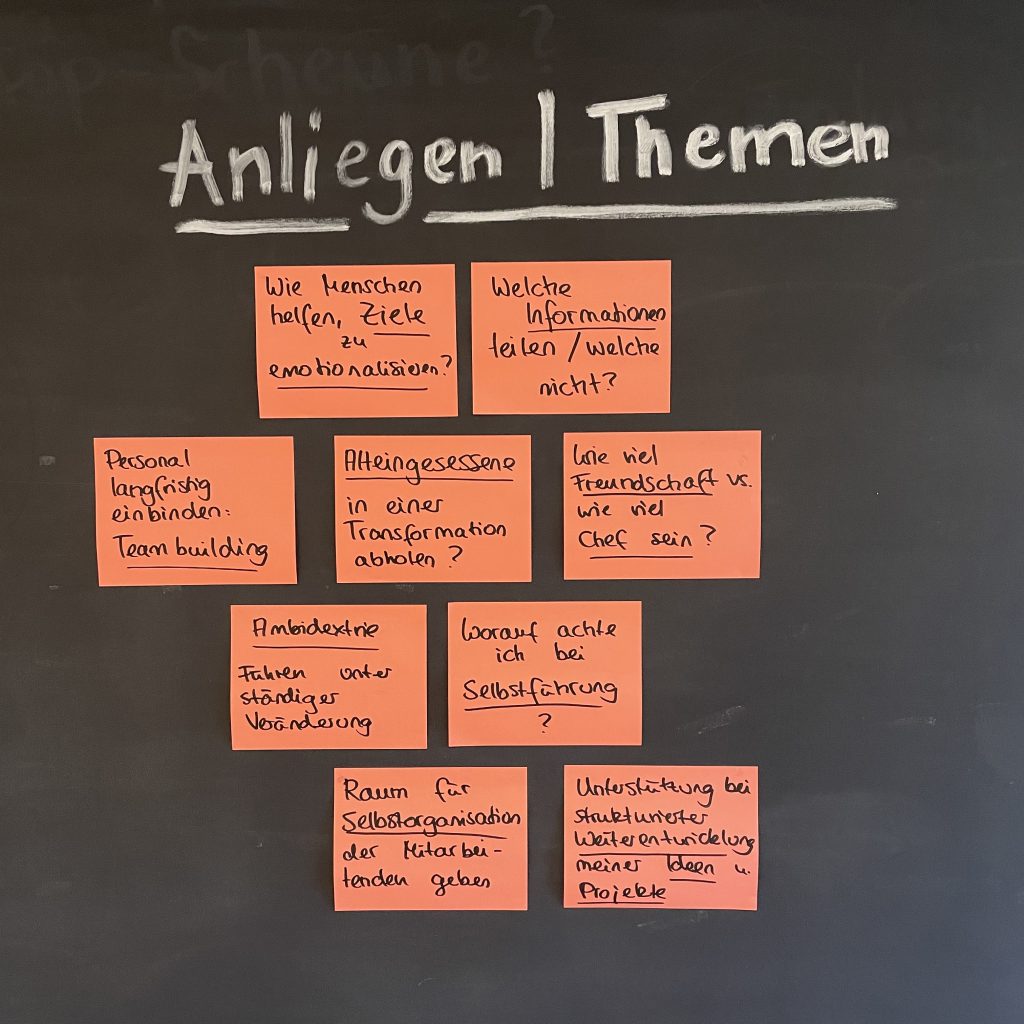 -Scheune?
Anliegen | Themen
Wie Menschen
helfen, Ziele
zu
emotionalisieren?
Welche
Informationen
teilen / welche
nicht?
Personal
langfristig
einbinden:
Teambuilding
Alteingesessene
in einer
Transformation
abholen?
Wie viel
Freundschaft vs.
wie viel
Chef sein?
Ambidextrie
Führen unter
ständiger
Veränderung
Worauf achte
ich bei
Selbstführung
?
Raum für
Selbstorganisation
der Mitarbei-
tenden geben
Unterstützung bei
strukturierter
Weiterentwicklung
meiner Ideen u.
Projekte